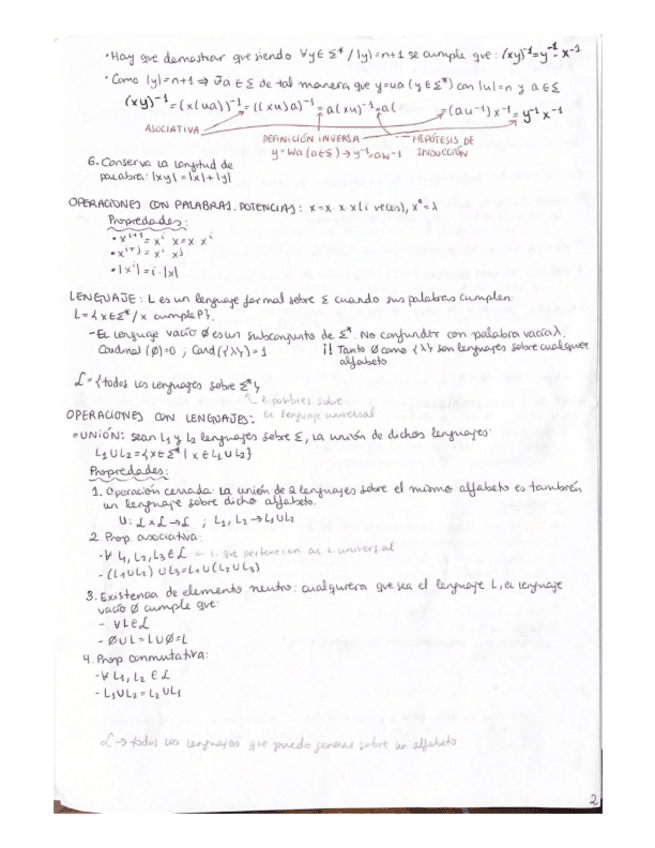 • Hay que demostrar que siendo ∀y∈ Σ* / |y|=n+1 se cumple que: (xy)⁻¹=y⁻¹ x⁻¹
• Como |y|=n+1 ⇒ ∃a ∈ Σ de tal manera que y=ua (y∈Σ*) con |u|=n y a∈Σ
(xy)⁻¹=(x(ua))⁻¹=((xu)a)⁻¹=a(xu)⁻¹=a( =(au⁻¹)x⁻¹=y⁻¹x⁻¹
ASOCIATIVA
DEFINICIÓN INVERSA
HIPÓTESIS DE
y=wa(a∈Σ)→y⁻¹=aw⁻¹ INDUCCIÓN
6. Conserva la longitud de
palabra: |xy|=|x|+|y|
OPERACIONES CON PALABRAS. POTENCIAS: x=x x x(i veces), x⁰=λ
Propiedades:
• xⁱ⁺¹=xⁱ x=x xⁱ
• xⁱ⁺ʲ=xⁱ xʲ
• |xⁱ|=i·|x|
LENGUAJE: L es un lenguaje formal sobre Σ cuando sus palabras cumplen:
L={x∈Σ*/x cumple P}.
- El lenguaje vacío ∅ es un subconjunto de Σ*. No confundir con palabra vacía λ.
Cardinal (∅)=0 ; Card({λ})=1 ¡! Tanto ∅ como {λ} son lenguajes sobre cualquier
alfabeto
ℒ={todos los lenguajes sobre Σ*}
sobre
OPERACIONES CON LENGUAJES: el lenguaje universal
• UNIÓN: sean L₁ y L₂ lenguajes sobre Σ, la unión de dichos lenguajes:
L₁∪L₂={x∈Σ* | x∈L₁∪L₂}
Propiedades:
1. Operación cerrada: la unión de 2 lenguajes sobre el mismo alfabeto es también
un lenguaje sobre dicho alfabeto.
U: ℒxℒ→ℒ ; L₁, L₂→L₁∪L₂
2. Prop. asociativa:
-∀ L₁, L₂, L₃∈ℒ ← L que pertenecen al L universal
- (L₁∪L₂) ∪L₃=L₁∪(L₂∪L₃)
3. Existencia de elemento neutro: cualquiera que sea el lenguaje L, el lenguaje
vacío ∅ cumple que:
- ∀L∈ℒ
- ∅∪L=L∪∅=L
4. Prop conmutativa:
-∀ L₁, L₂ ∈ ℒ
- L₁∪L₂=L₂∪L₁
ℒ → todos los lenguajes que puedo generar sobre un alfabeto
2